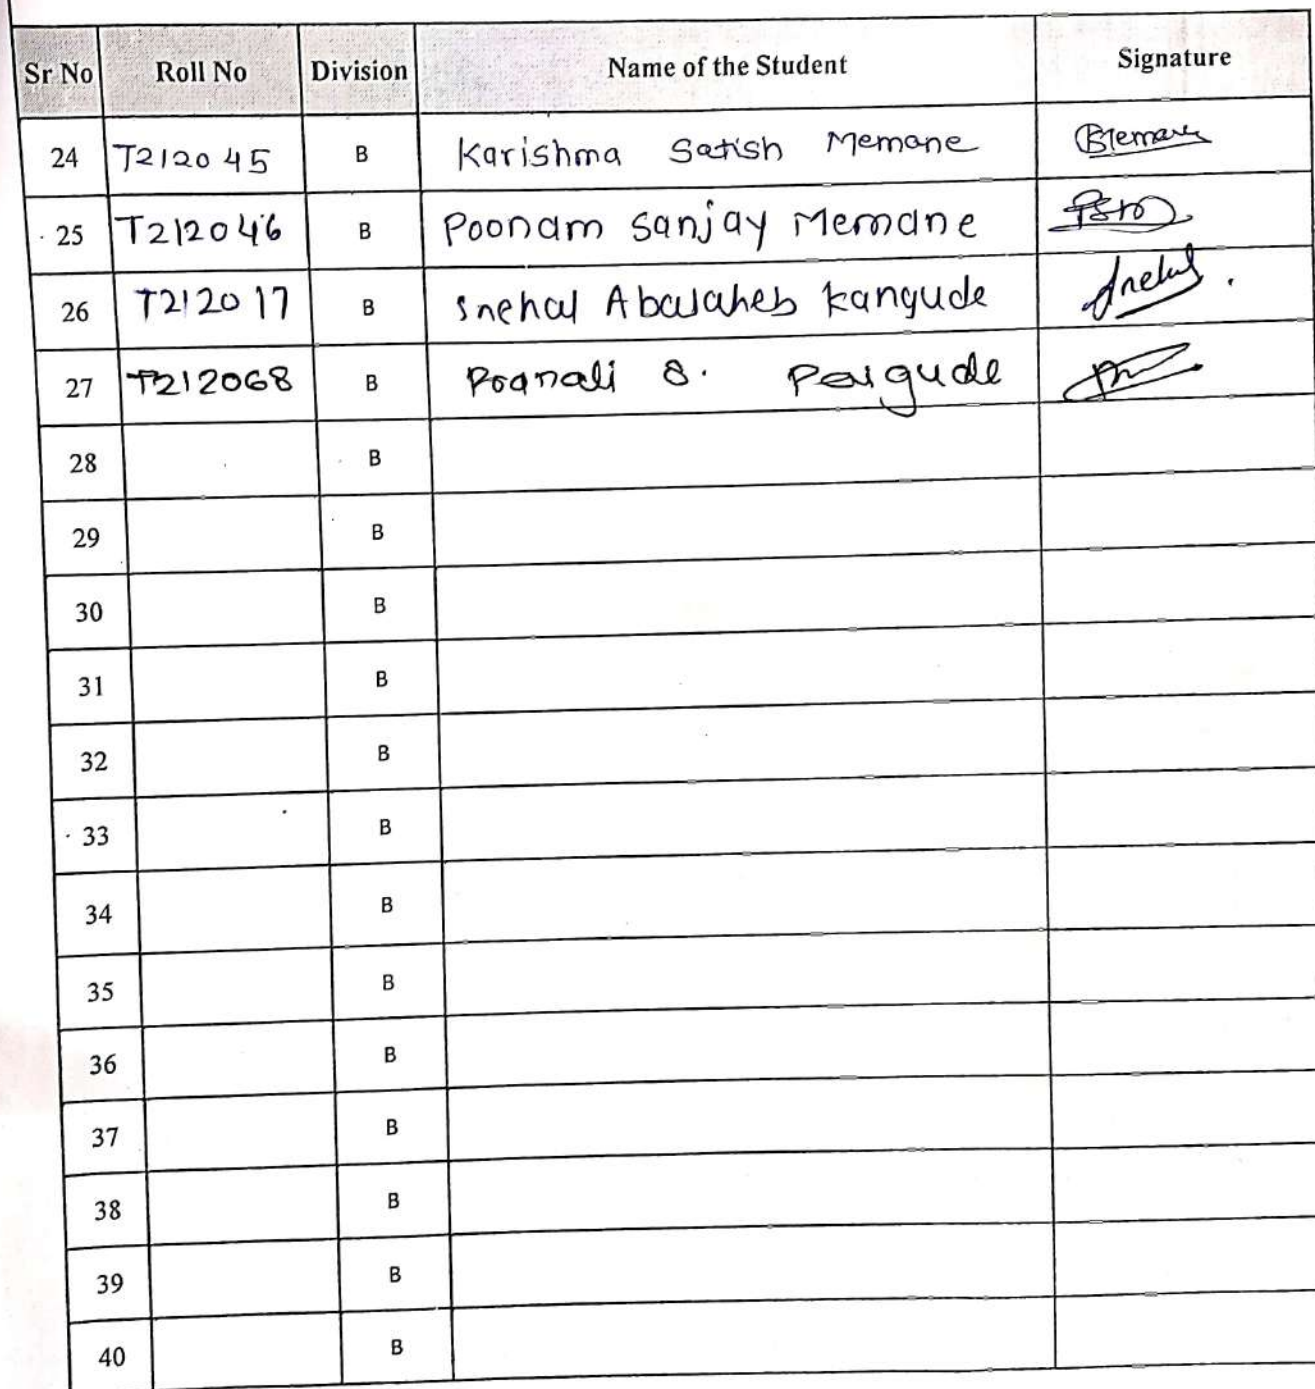 Sr No Roll No Division Name of the Student Signature
24 T212045 B Karishma Satish Memane
25 T212046 B Poonam Sanjay Memane
26 T212017 B Snehal Abasaheb Kangude Snehal.
27 T212068 B S. Paigude
28 B
29 B
30 B
31 B
32 B
33 B
34 B
35 B
36 B
37 B
38 B
39 B
40 B